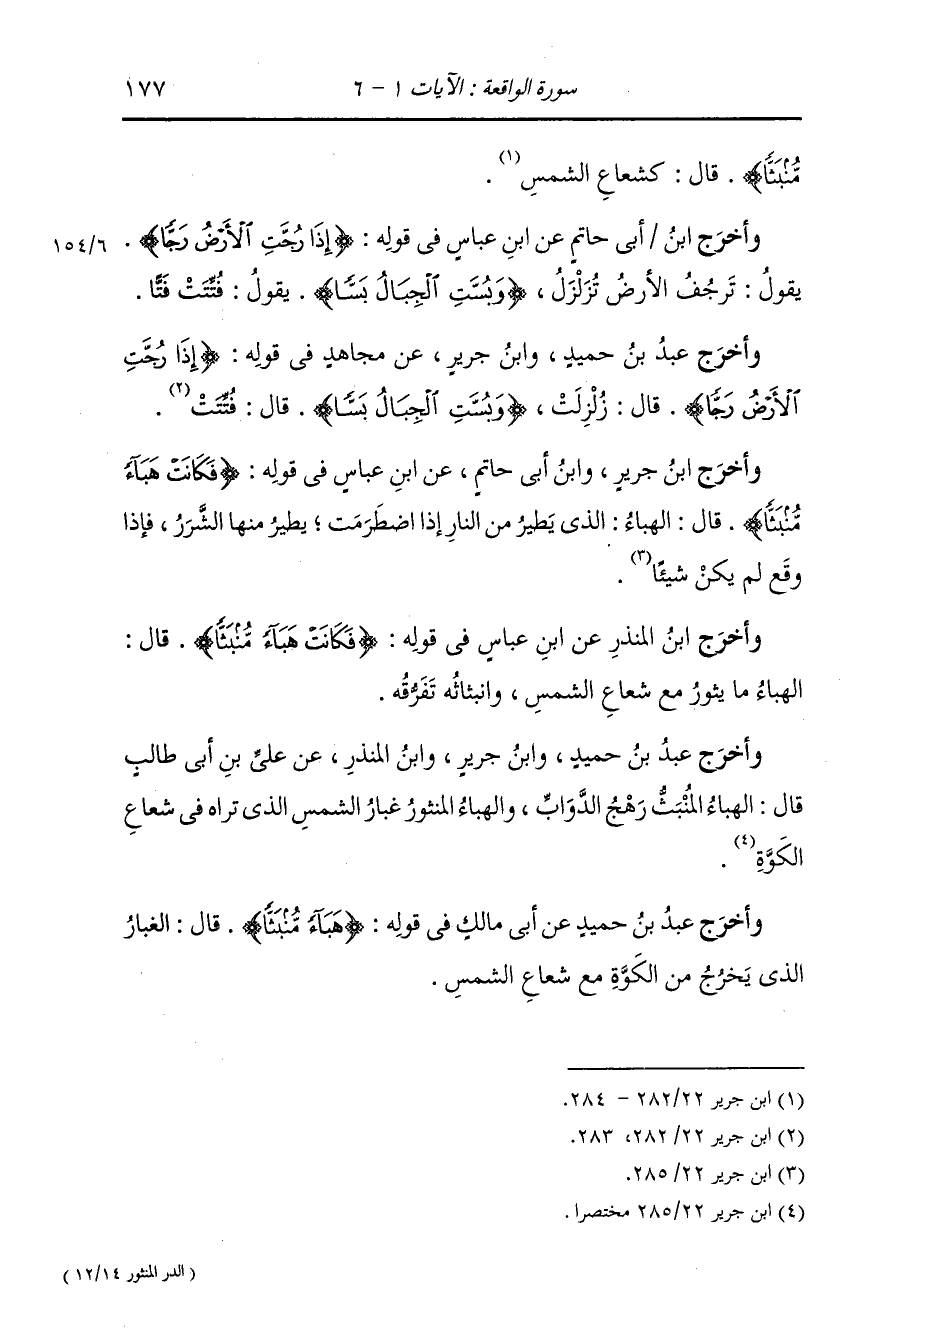 سورة الواقعة : الآيات ١ - ٦ ١٧٧
مُّنۢبَثًّا﴾ . قال : كشعاعِ الشمسِ(١) .
وأخرَج ابنُ / أبى حاتمٍ عن ابنِ عباسٍ فى قولِه : ﴿إِذَا رُجَّتِ ٱلْأَرْضُ رَجًّا﴾ . ١٥٤/٦
يقولُ : تَرجُفُ الأرضُ تُزَلْزَلُ ، ﴿وَبُسَّتِ ٱلْجِبَالُ بَسًّا﴾ . يقولُ : فُتِّتَتْ فَتًّا .
وأخرَج عبدُ بنُ حميدٍ ، وابنُ جريرٍ ، عن مجاهدٍ فى قولِه : ﴿إِذَا رُجَّتِ
ٱلْأَرْضُ رَجًّا﴾ . قال : زُلْزِلَتْ ، ﴿وَبُسَّتِ ٱلْجِبَالُ بَسًّا﴾ . قال : فُتِّتَتْ(٢) .
وأخرَج ابنُ جريرٍ ، وابنُ أبى حاتمٍ ، عن ابنِ عباسٍ فى قولِه : ﴿فَكَانَتْ هَبَآءً
مُّنۢبَثًّا﴾ . قال : الهباءُ : الذى يَطيرُ من النارِ إذا اضطَرَمَت ؛ يطيرُ منها الشَّرَرُ ، فإذا
وقَع لم يكنْ شيئًا(٣) .
وأخرَج ابنُ المنذرِ عن ابنِ عباسٍ فى قولِه : ﴿فَكَانَتْ هَبَآءً مُّنۢبَثًّا﴾ . قال :
الهباءُ ما يثورُ مع شعاعِ الشمسِ ، وانبثاثُه تَفَرُّقُه .
وأخرَج عبدُ بنُ حميدٍ ، وابنُ جريرٍ ، وابنُ المنذرِ ، عن علىِّ بنِ أبى طالبٍ
قال : الهباءُ المُنْبَثُّ رَهْجُ الدَّوَابِّ ، والهباءُ المنثورُ غبارُ الشمسِ الذى تراه فى شعاعِ
الكَوَّةِ(٤) .
وأخرَج عبدُ بنُ حميدٍ عن أبى مالكٍ فى قولِه : ﴿هَبَآءً مُّنۢبَثًّا﴾ . قال : الغبارُ
الذى يَخرُجُ من الكَوَّةِ مع شعاعِ الشمسِ .
(١) ابن جرير ٢٢/ ٢٨٢ - ٢٨٤.
(٢) ابن جرير ٢٢/ ٢٨٢، ٢٨٣.
(٣) ابن جرير ٢٢/ ٢٨٥.
(٤) ابن جرير ٢٢/ ٢٨٥ مختصرا .
( الدر المنثور ١٢/١٤ )